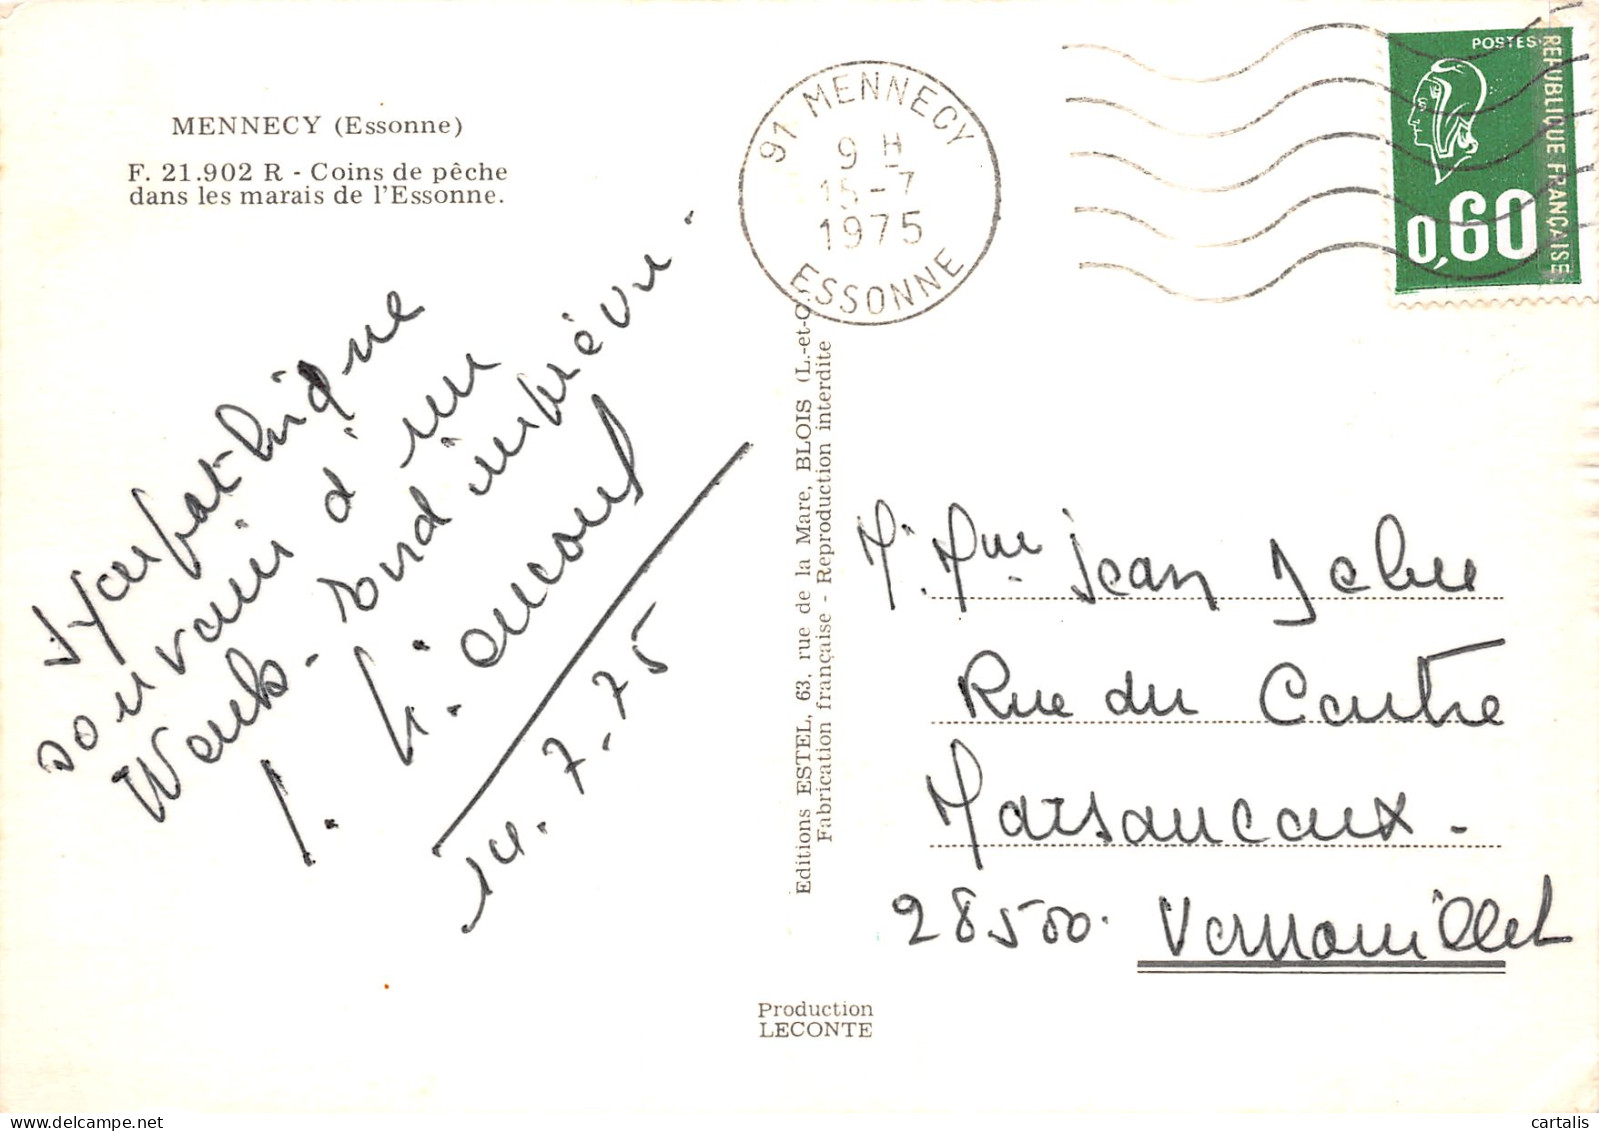 MENNECY (Essonne)
F. 21.902 R - Coins de pêche
dans les marais de l'Essonne.
sympathique
souvenir d'un
Week-end imprévu.
14.7.75
Editions ESTEL, 63, rue de la Mare, BLOIS (L.-et-C
Fabrication française - Reproduction interdite
Production
LECONTE
91 MENNECY
9 H
15-7
1975
ESSONNE
POSTES
REPUBLIQUE FRANÇAISE
0,60
M. Mme Jean
Rue du Centre
Marsauceux -
28500. Vernouillet
cartalis